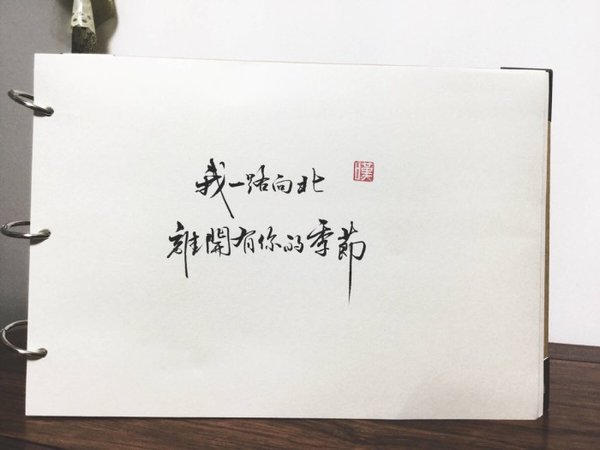 我一路向北
離開有你的季節
漢